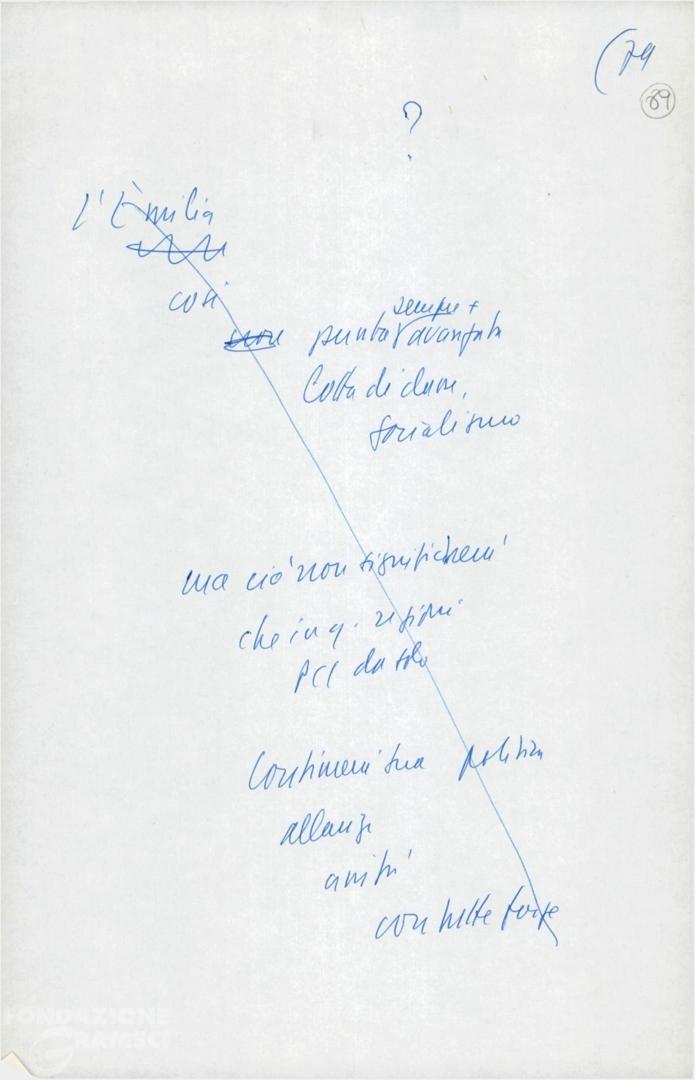 (79
89
?
L'Emilia
così
sempre +
non punta avanzata
Lotta di classe,
socialismo
ma ciò non significherà
che in q. regioni
PCI da solo
Continuerà sua politica
alleanze
unità
con tutte forze
FONDAZIONE
GRAMSCI